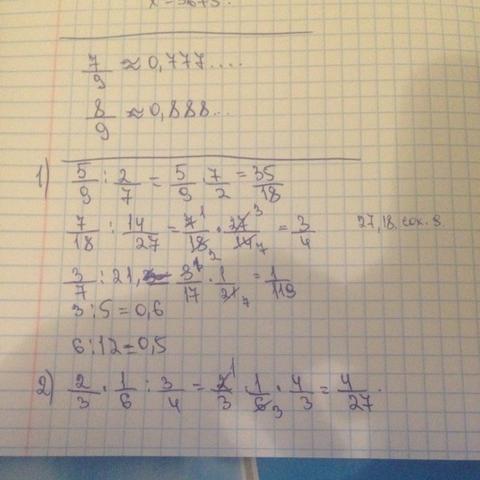 x = 36 + 3.
7/9 ≈ 0,777....
8/9 ≈ 0,888...
1) 5/9 : 2/7 = 5/9 · 7/2 = 35/18
7/18 : 14/27 = 7/18 · 27/14 = 3/4 27,18. сок. 9
3/7 : 21, 3/17 · 1/21 = 1/119
3 : 5 = 0,6
6 : 12 = 0,5
2) 2/3 · 1/6 : 3/4 = 2/3 · 1/6 · 4/3 = 4/27.